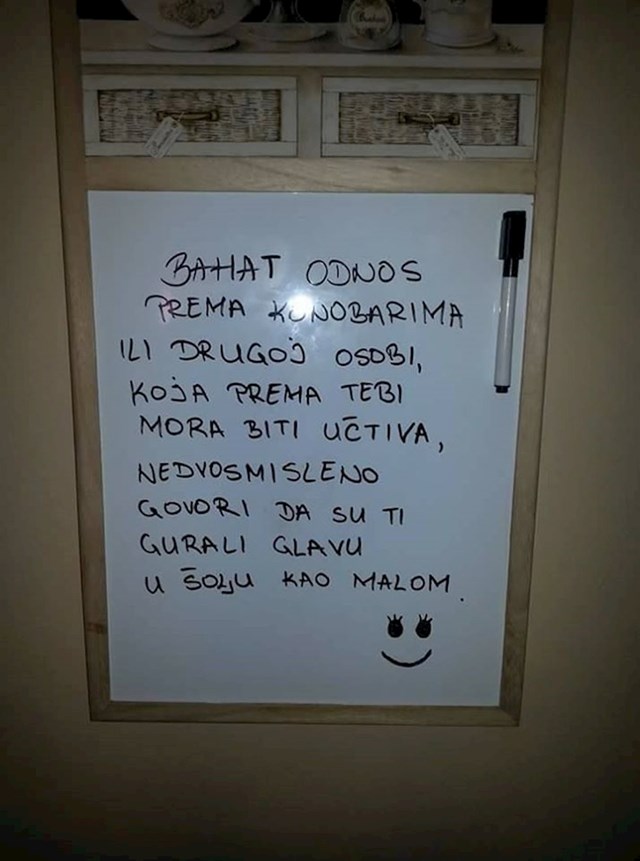 BAHAT ODNOS
PREMA KONOBARIMA
ILI DRUGOJ OSOBI,
KOJA PREMA TEBI
MORA BITI UČTIVA,
NEDVOSMISLENO
GOVORI DA SU TI
GURALI GLAVU
U ŠOLJU KAO MALOM.